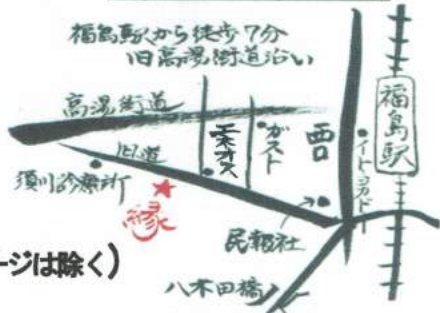 福島駅から徒歩7分
旧高湯街道沿い
高湯街道
旧道
須川診療所
縁
エネオス
ガスト
西口
イトーヨーカドー
福島駅
民報社
八木田橋
ージは除く）